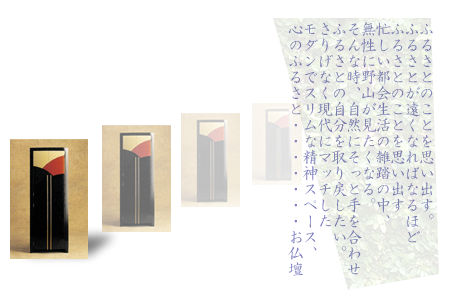 ふるさとのことを思い出す。
ふるさとが遠くなればなるほど
ふるさとのことを思い出す
忙しい都会生活の雑踏の中、
無性に野山が見たくなる。
そんな時、自然にそっと手を合わせ
ふるさとの自分を取り戻したい。
さりげなく現代にマッチした
モダンでスリムな精神スペース、
心のふるさと・・・・・・・お仏壇